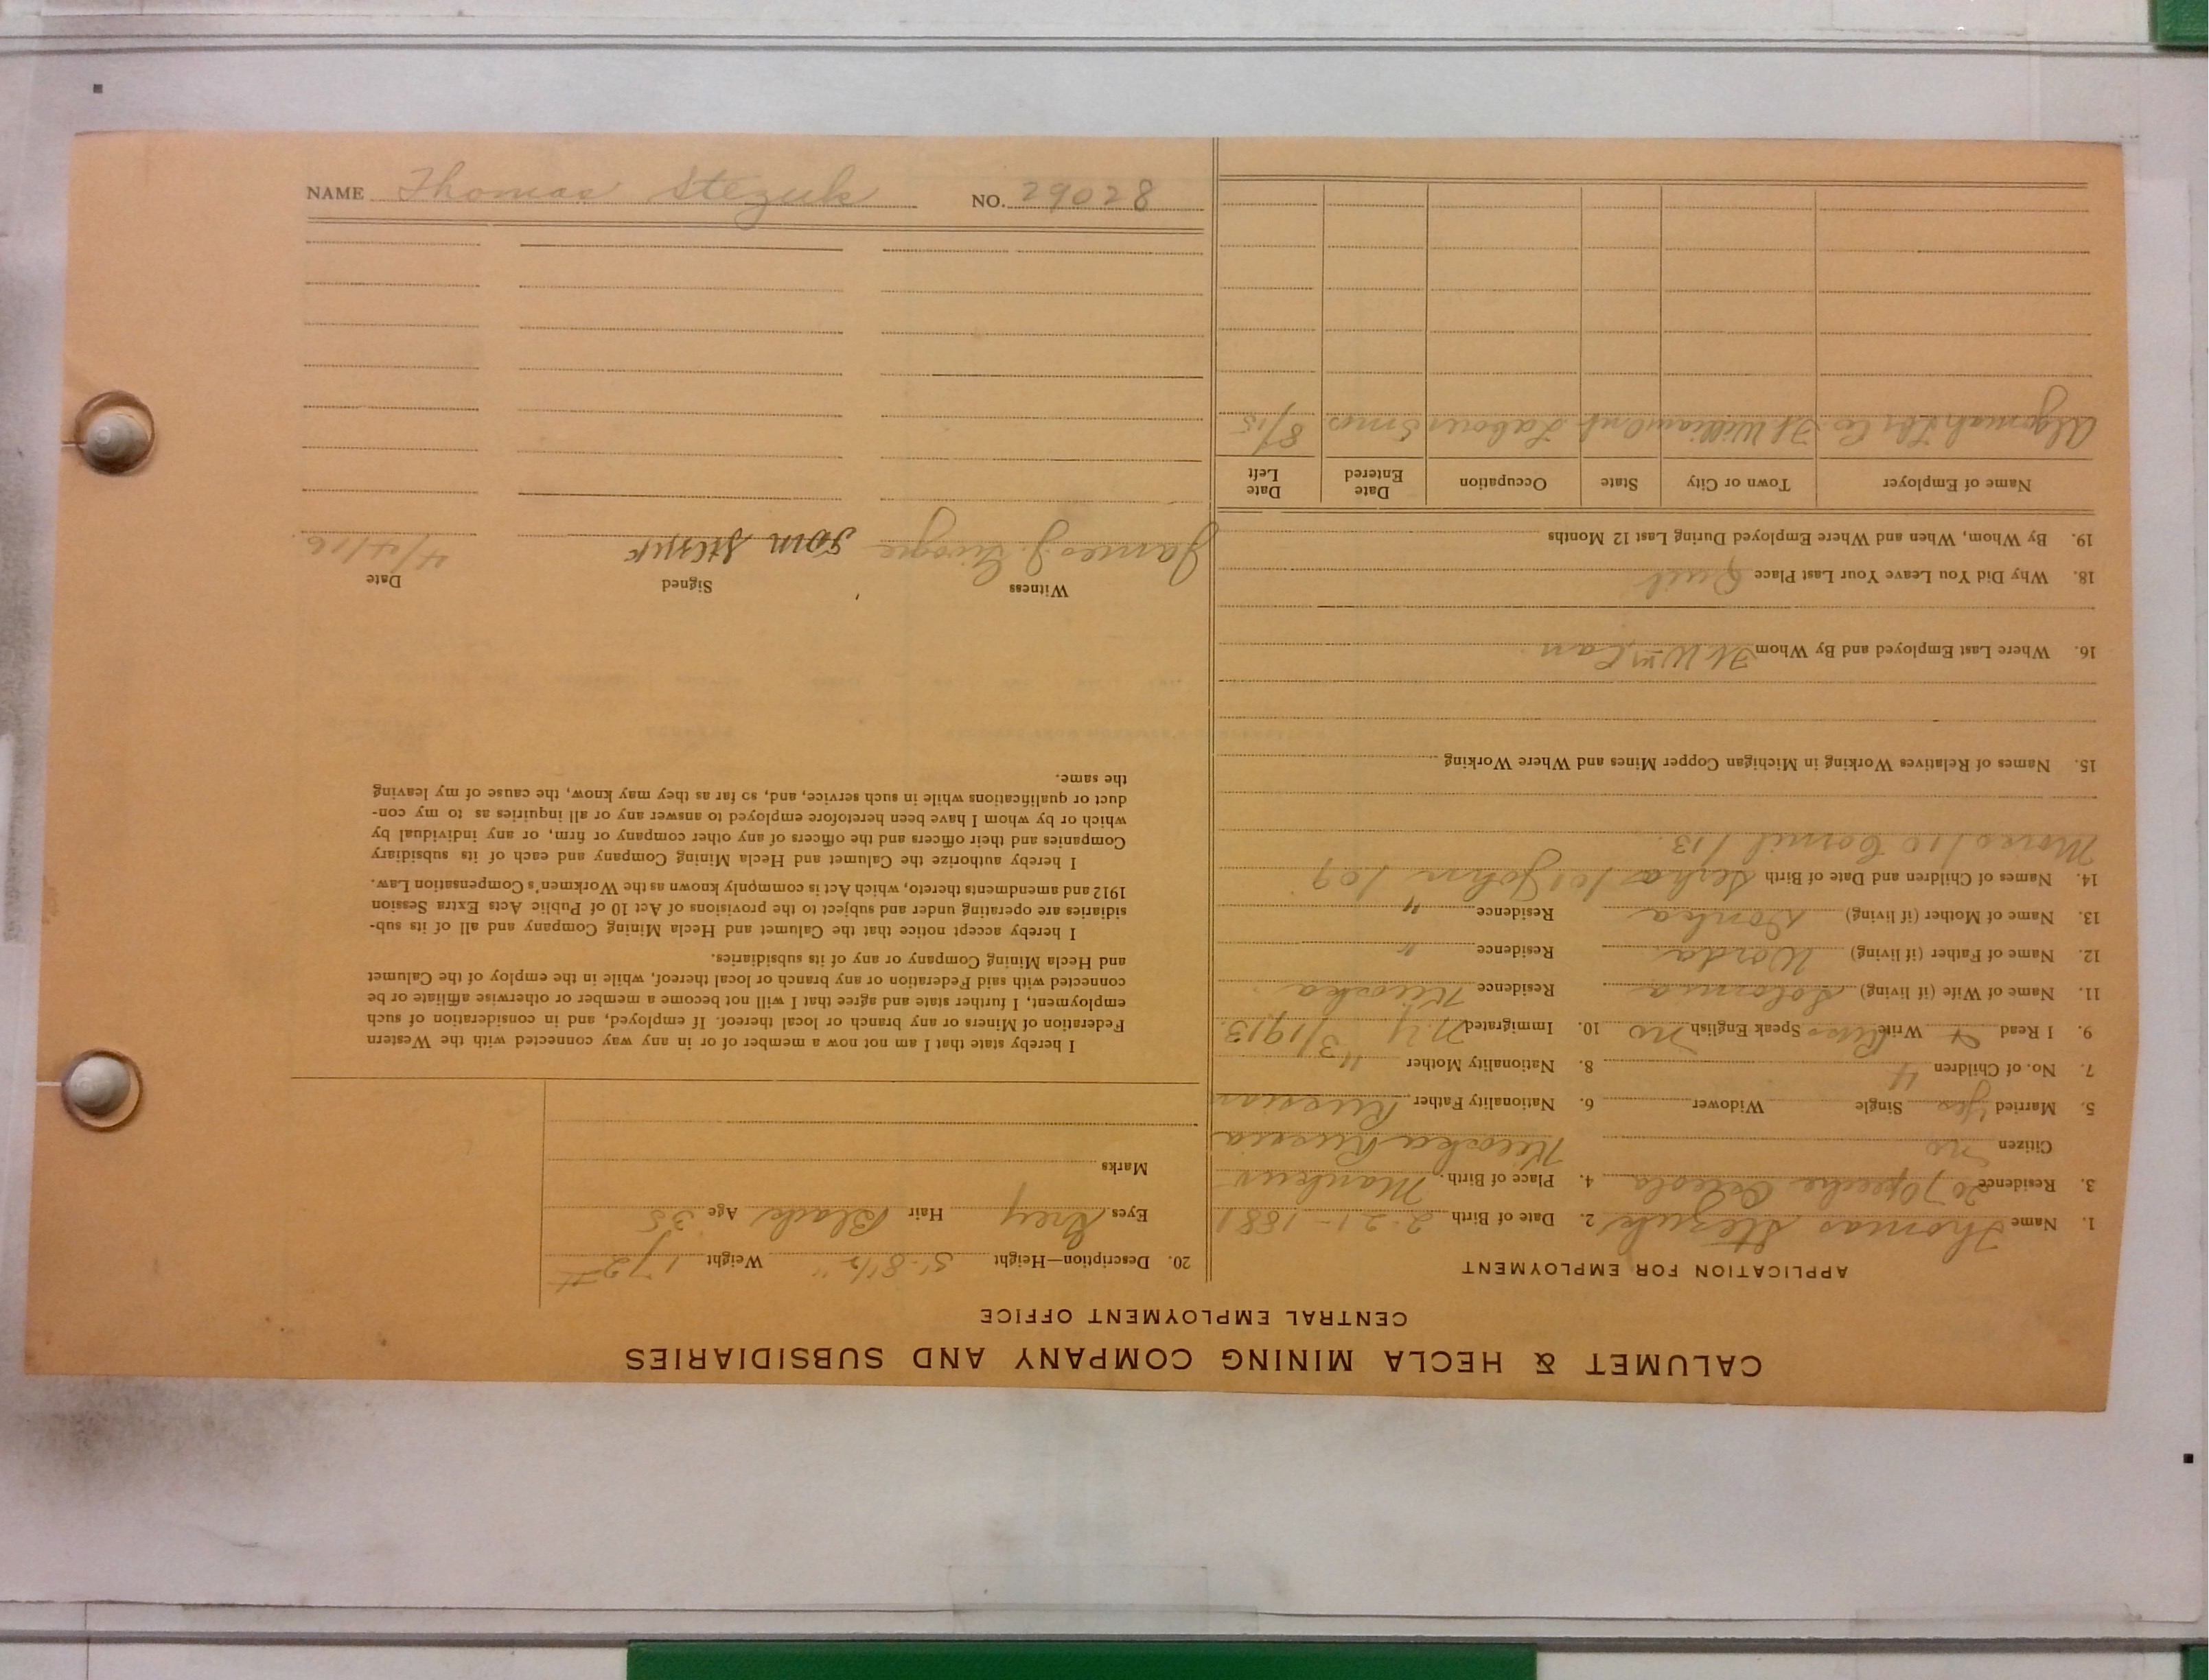 CALUMET & HECLA MINING COMPANY AND SUBSIDIARIES
CENTRAL EMPLOYMENT OFFICE
APPLICATION FOR EMPLOYMENT
1. Name Thomas Stezuk 2. Date of Birth 2-21-1881
3. Residence 207 Opeche Osceola 4. Place of Birth
Citizen no Russia
5. Married Yes Single Widower 6. Nationality Father Russian
7. No. of Children 4 8. Nationality Mother "
9. I Read & Write Russ Speak English no 10. Immigrated N.Y 3/1913
11. Name of Wife (if living) Solomia Residence
12. Name of Father (if living) Residence "
13. Name of Mother (if living) Residence "
14. Names of Children and Date of Birth /01 John /09
/10 /13.
15. Names of Relatives Working in Michigan Copper Mines and Where Working
16. Where Last Employed and By Whom Ft Wm Can
18. Why Did You Leave Your Last Place Quit
19. By Whom, When and Where Employed During Last 12 Months
Name of Employer Town or City State Occupation Date Entered Date Left
Algomah Co. Ft William Ont Labour 5 mos 8/15
20. Description—Height 5'-8 1/2" Weight 172#
Eyes Grey Hair Black Age 35
Marks
I hereby state that I am not now a member of or in any way connected with the Western
Federation of Miners or any branch or local thereof. If employed, and in consideration of such
employment, I further state and agree that I will not become a member or otherwise affiliate or be
connected with said Federation or any branch or local thereof, while in the employ of the Calumet
and Hecla Mining Company or any of its subsidiaries.
I hereby accept notice that the Calumet and Hecla Mining Company and all of its sub-
sidiaries are operating under and subject to the provisions of Act 10 of Public Acts Extra Session
1912 and amendments thereto, which Act is commonly known as the Workmen's Compensation Law.
I hereby authorize the Calumet and Hecla Mining Company and each of its subsidiary
Companies and their officers and the officers of any other company or firm, or any individual by
which or by whom I have been heretofore employed to answer any or all inquiries as to my con-
duct or qualifications while in such service, and, so far as they may know, the cause of my leaving
the same.
Witness Signed Date
James J. Tom 4/4/16.
NAME Thomas Stezuk NO. 29028